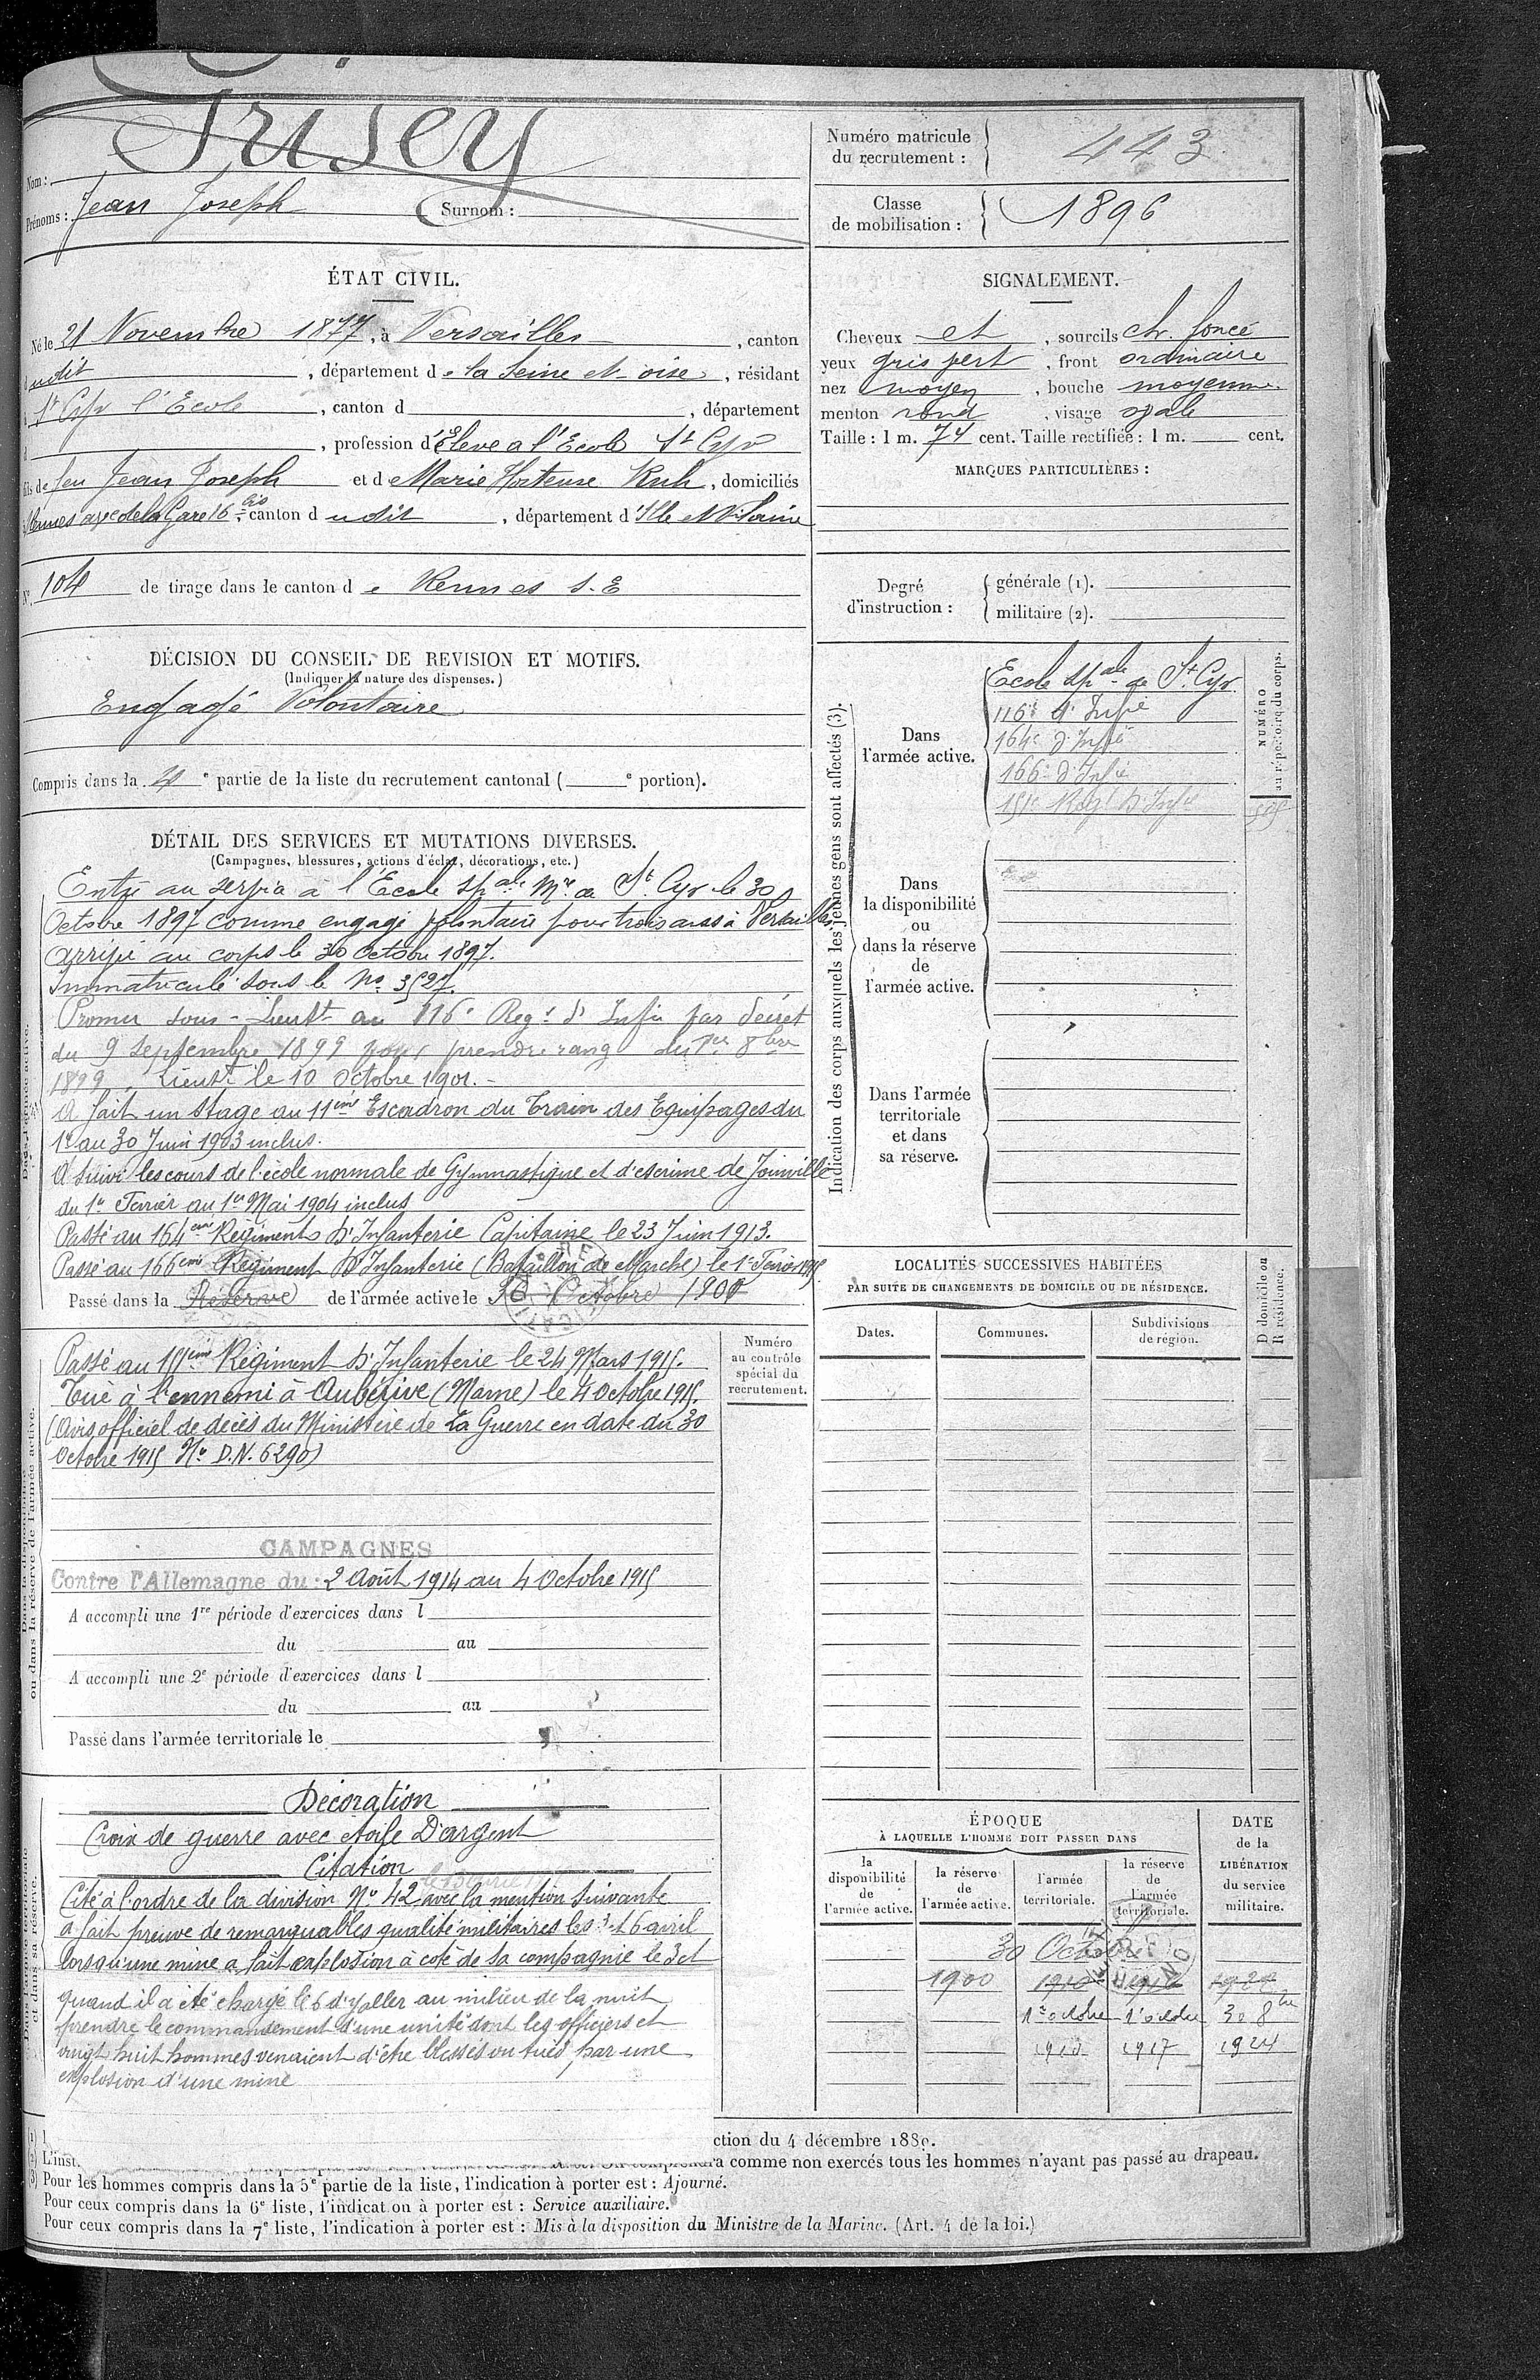 Nom : Frisey
Prénoms : Jean Joseph Surnom :
Numéro matricule
du recrutement : 443
Classe
de mobilisation : 1896
ÉTAT CIVIL.
Né le 21 Novembre 1877, à Versailles, canton
udit, département de la Seine et oise, résidant
St Cyr l'Ecole, canton d, département
, profession d'Elève a l'Ecole St Cyr
fils de feu Jean Joseph et de Marie Hortense, domiciliés
Rennes ave de la Gare 16 bis, canton dudit, département d'Ille et Vilaine
SIGNALEMENT.
Cheveux et, sourcils ch. foncé
yeux gris vert, front ordinaire
nez moyen, bouche moyenne
menton rond, visage ovale
Taille : 1 m. 74 cent. Taille rectifiée : 1 m. cent.
MARQUES PARTICULIÈRES :
N° 104 de tirage dans le canton de Rennes S.E
Degré
d'instruction :
générale (1).
militaire (2).
DÉCISION DU CONSEIL DE REVISION ET MOTIFS.
(Indiquer la nature des dispenses.)
Engagé Volontaire
Compris dans la e partie de la liste du recrutement cantonal ( e portion).
DÉTAIL DES SERVICES ET MUTATIONS DIVERSES.
(Campagnes, blessures, actions d'éclat, décorations, etc.)
Entré au service à l'Ecole spale Mre de St Cyr le 30
Octobre 1897 comme engagé volontaire pour trois ans à Versailles
arrivé au corps le 30 Octobre 1897.
Immatriculé sous le No 3527.
Promu sous-Lieutt au 116e Regt d'Infie par décret
du 9 Septembre 1899 pour prendre rang du 1er 8bre
1899, Lieutt le 10 Octobre 1901.-
A fait un stage au 11eme Escadron du Train des Equipages du
1er au 30 Juin 1903 inclus.
A suivi les cours de l'école normale de Gymnastique et d'escrime de Joinville
du 1er Février au 1er Mai 1904 inclus
Passé au 164eme Régiment D'Infanterie Capitaine le 23 Juin 1913.
Passé au 166eme Régiment D'Infanterie (Bataillon de Marche) le 1er Février 1915
Passé dans la Réserve de l'armée active le 30 Octobre 1900
Passé au 151eme Régiment D'Infanterie le 24 Mars 1915.
Tué à l'ennemi à Aubérive (Marne) le 4 Octobre 1915.
(Avis officiel de décès du Ministère de La Guerre en date du 30
Octobre 1915 No D.N. 6290)
Numéro
au contrôle
spécial du
recrutement.
CAMPAGNES
Contre l'Allemagne du : 2 Août 1914 au 4 Octobre 1915
A accompli une 1re période d'exercices dans l
du au
A accompli une 2e période d'exercices dans l
du au
Passé dans l'armée territoriale le
Décoration
Croix de guerre avec étoile D'argent
Citation
Cité à l'ordre de la division No 42 avec la mention suivante
a fait preuve de remarquables qualité militaires les 3 et 6 avril
lorsqu'une mine a fait explosion à coté de sa compagnie le 3 et
quand il a été chargé le 6 d'aller au milieu de la nuit
prendre le commandement d'une unité dont les officiers et
vingt huit hommes venaient d'être blessés ou tués par une
explosion d'une mine
Indication des corps auxquels les jeunes gens sont affectés (3).
NUMÉRO
au répertoire du corps.
Dans
l'armée active.
Ecole spale de St Cyr
116e d'Infie
164e d'Infie
166e d'Infie
151e Regt D'Infie
Dans
la disponibilité
ou
dans la réserve
de
l'armée active.
Dans l'armée
territoriale
et dans
sa réserve.
LOCALITÉS SUCCESSIVES HABITÉES
PAR SUITE DE CHANGEMENTS DE DOMICILE OU DE RÉSIDENCE.
Dates. Communes. Subdivisions
de région.
D domicile ou
R résidence.
ÉPOQUE
À LAQUELLE L'HOMME DOIT PASSER DANS
la
disponibilité
de
l'armée active.
la réserve
de
l'armée active.
l'armée
territoriale.
la réserve
de
l'armée
territoriale.
DATE
de la
LIBÉRATION
du service
militaire.
30 Octobre
1900 1910
1er octobre 1er octobre 30 8bre
1910 1917 1924
ction du 4 décembre 1889.
(2) L'inst. comprendra comme non exercés tous les hommes n'ayant pas passé au drapeau.
(3) Pour les hommes compris dans la 5e partie de la liste, l'indication à porter est : Ajourné.
Pour ceux compris dans la 6e liste, l'indication à porter est : Service auxiliaire.
Pour ceux compris dans la 7e liste, l'indication à porter est : Mis à la disposition du Ministre de la Marine. (Art. 4 de la loi.)